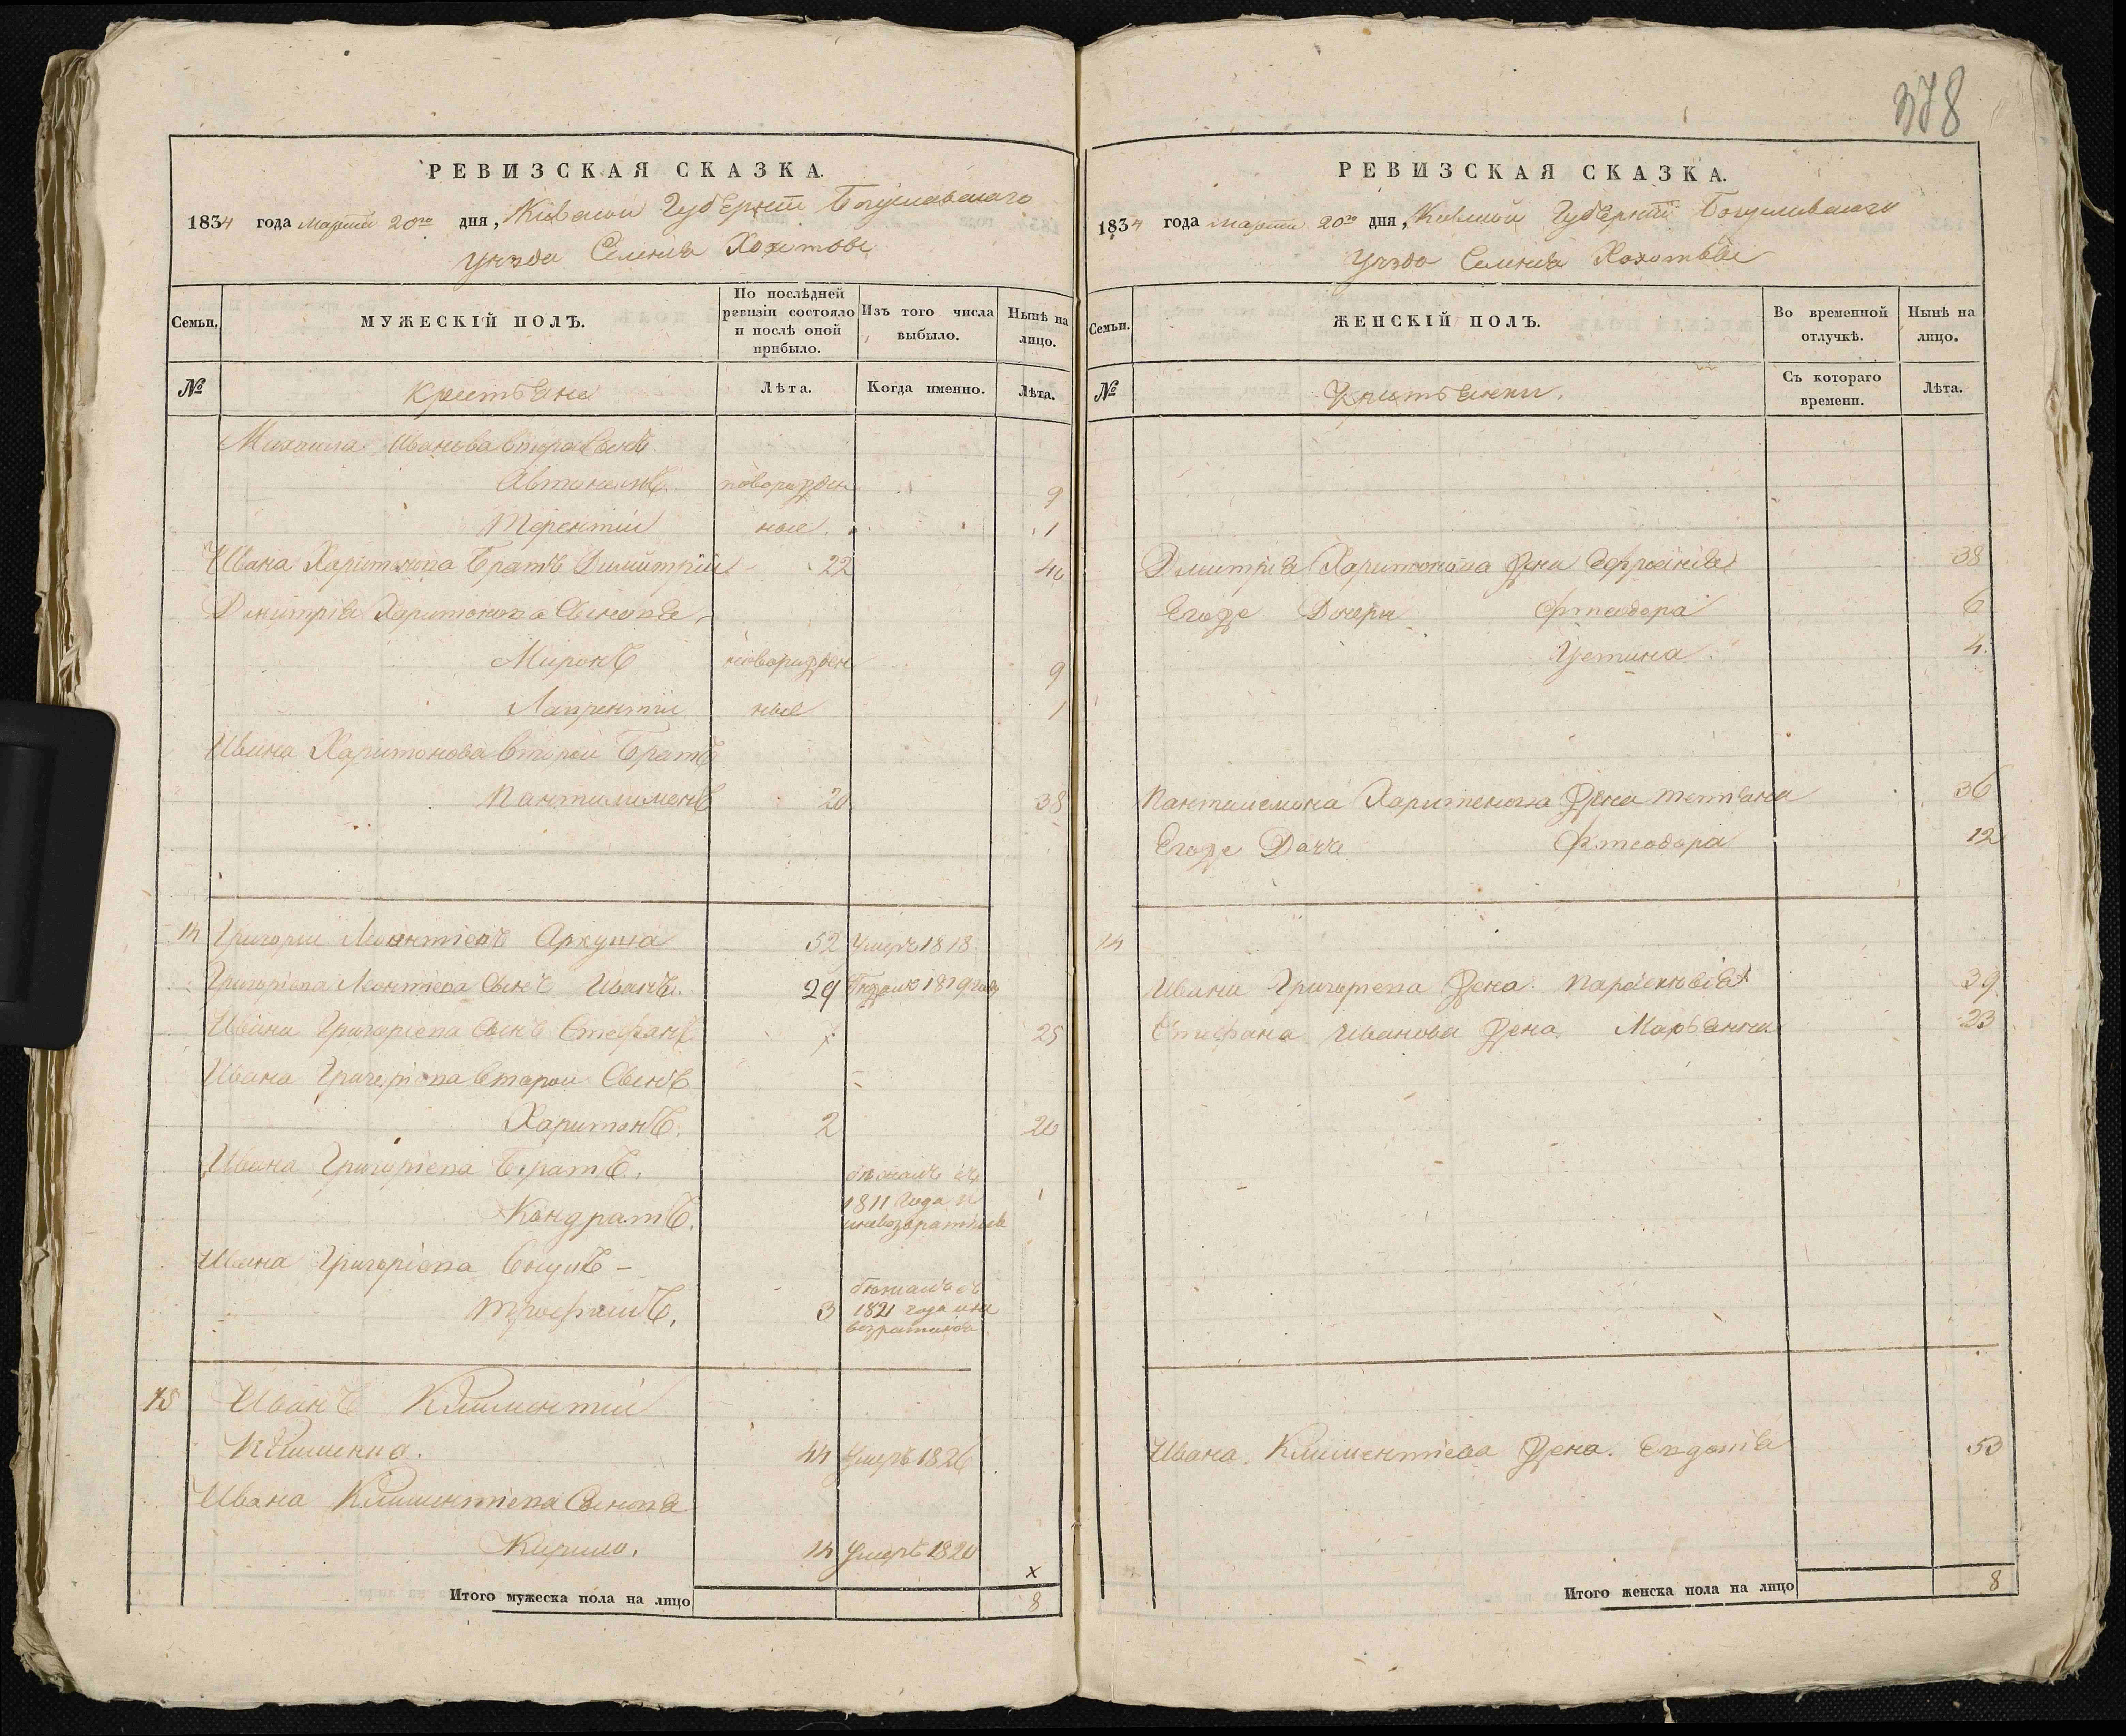 378
РЕВИЗСКАЯ СКАЗКА.
1834 года марта 20го дня, Кіевской Губерніи Богуславскаго
уезда Селенія Хохитове
Семьи.
МУЖЕСКІЙ ПОЛЪ.
По послѣдней ревизіи состояло и послѣ оной прибыло.
Изъ того числа выбыло.
Нынѣ на лицо.
№
крестьяне
Лѣта.
Когда именно.
Лѣта.
Иванова Сынъ
новорожден
9
Терентіи
ные
1
Ивана Харитонова Братъ Димитріи 22 40
Дмитрія Харитонова Сыновья
Миронъ новорожден 9
Лаврентіи ные 1
Ивана Харитонова Второй Братъ
Пантилимонъ 20 38
14 Григории Леонтіевъ Аркуша 52 Умеръ 1818
Григоріева Леонтіева Сынъ Иванъ 29 1819
Ивана Григоріева Сынъ Стефанъ 7 25
Ивана Григоріева Второй Сынъ
Харитонъ. 2 20
Ивана Григоріева Братъ.
Кондратъ. бежалъ съ
1811 года и
невозвратился
Ивана Григоріева Внукъ –
Трофимъ. 3 бежалъ съ
1821 года и не
возратился
15 Иванъ Климентіи
Клименко. 44 Умеръ 1826
Ивана Климентіева Сыновья
Кирило. 14 Умеръ 1820
х
Итого мужеска пола на лицо 8
РЕВИЗСКАЯ СКАЗКА.
1834 года марта 20го дня, Кіевской Губерніи Богуславскаго
уезда Селенія Хохитове
Семьи.
ЖЕНСКІЙ ПОЛЪ.
Во временной отлучкѣ.
Нынѣ на лицо.
№
Крестьянки.
Съ котораго времени.
Лѣта.
Дмитрія Харитонова Жена Ефросинія 38
Егоже Дочери Фтеодора 6
Устина 4
Пантилемона Харитонова Жена Татіана 36
Егоже Дочь Фтеодора 12
14
Ивана Григоріева Жена Параскювія 39
Стефана Иванова Жена Марьянна 23
Ивана Климентіева Жена. Евдокія 53
Итого женска пола на лицо 8